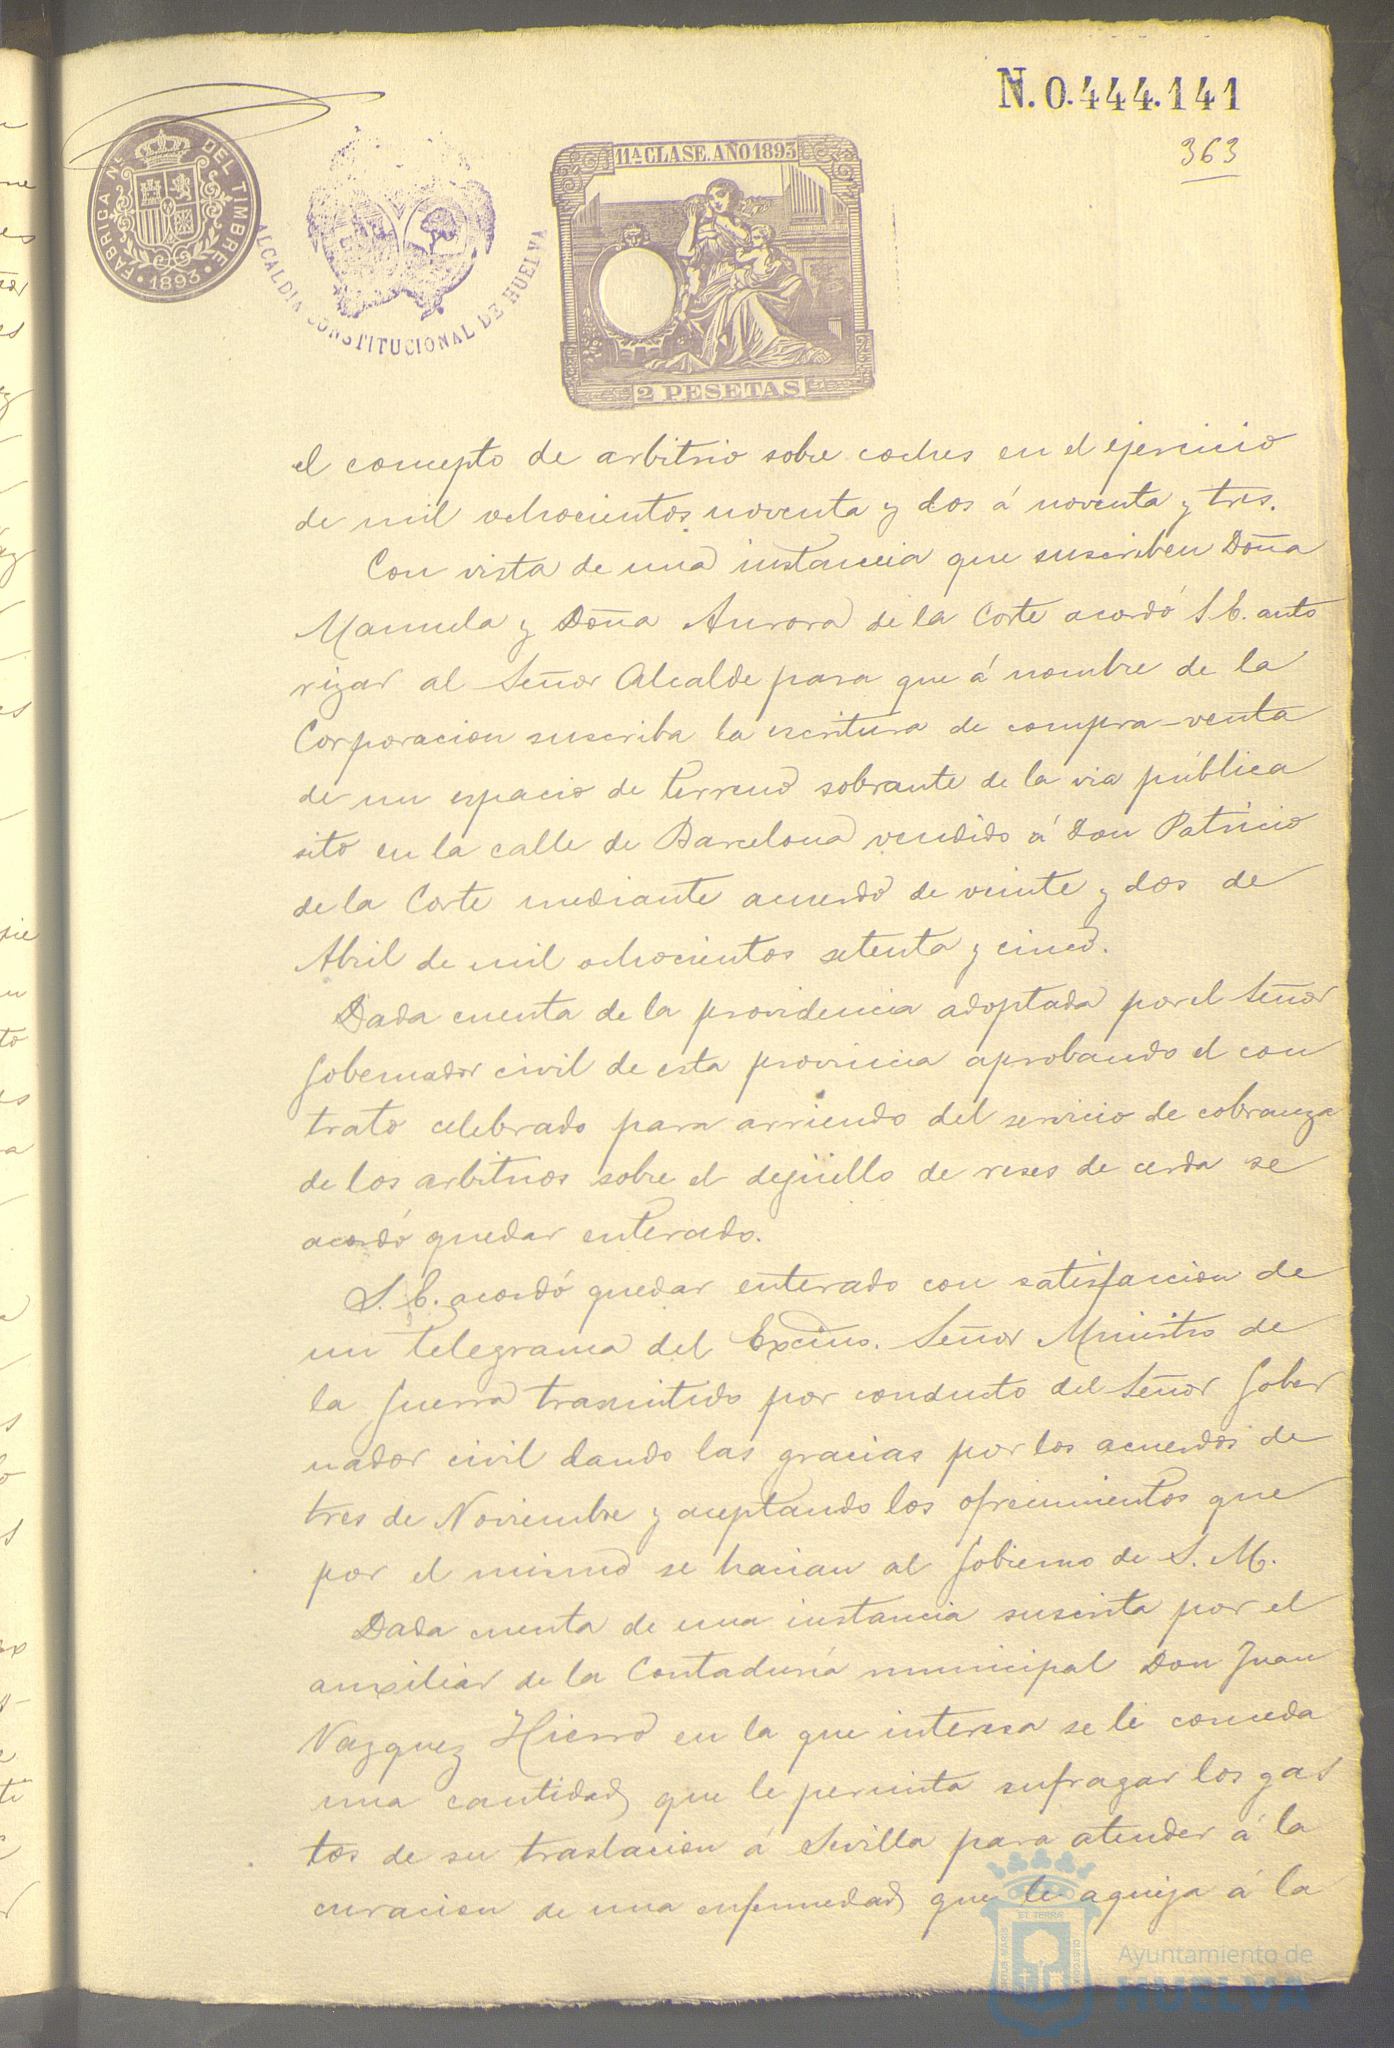 N. 0.444.141
363
FABRICA NL. DEL TIMBRE
1893
ALCALDIA CONSTITUCIONAL DE HUELVA
11ª CLASE. AÑO 1893
2 PESETAS
el concepto de arbitrio sobre coches en el ejercicio
de mil ochocientos noventa y dos á noventa y tres.
Con vista de una instancia que suscriben Doña
Manuela y Doña Aurora de la Corte acordó S. E. auto
rizar al Señor Alcalde para que á nombre de la
Corporacion suscriba la escritura de compra-venta
de un espacio de terreno sobrante de la via pública
sito en la calle de Barcelona vendido á Don Patricio
de la Corte mediante acuerdo de veinte y dos de
Abril de mil ochocientos setenta y cinco.
Dada cuenta de la providencia adoptada por el Señor
Gobernador civil de esta provincia aprobando el con
trato celebrado para arriendo del servicio de cobranza
de los arbitrios sobre el degüello de reses de cerda se
acordó quedar enterado.
S. E. acordó quedar enterado con satisfaccion de
un telegrama del Excmo. Señor Ministro de
la Guerra trasmitido por conducto del Señor Gober
nador civil dando las gracias por los acuerdos de
tres de Noviembre y aceptando los ofrecimientos que
por el mismo se hacian al Gobierno de S. M.
Dada cuenta de una instancia suscrita por el
auxiliar de la Contaduría municipal Don Juan
Vazquez Hierro en la que interesa se le conceda
una cantidad que le permita sufragar los gas
tos de su traslacion á Sevilla para atender á la
curacion de una enfermedad que le aqueja á la
Ayuntamiento de
HUELVA